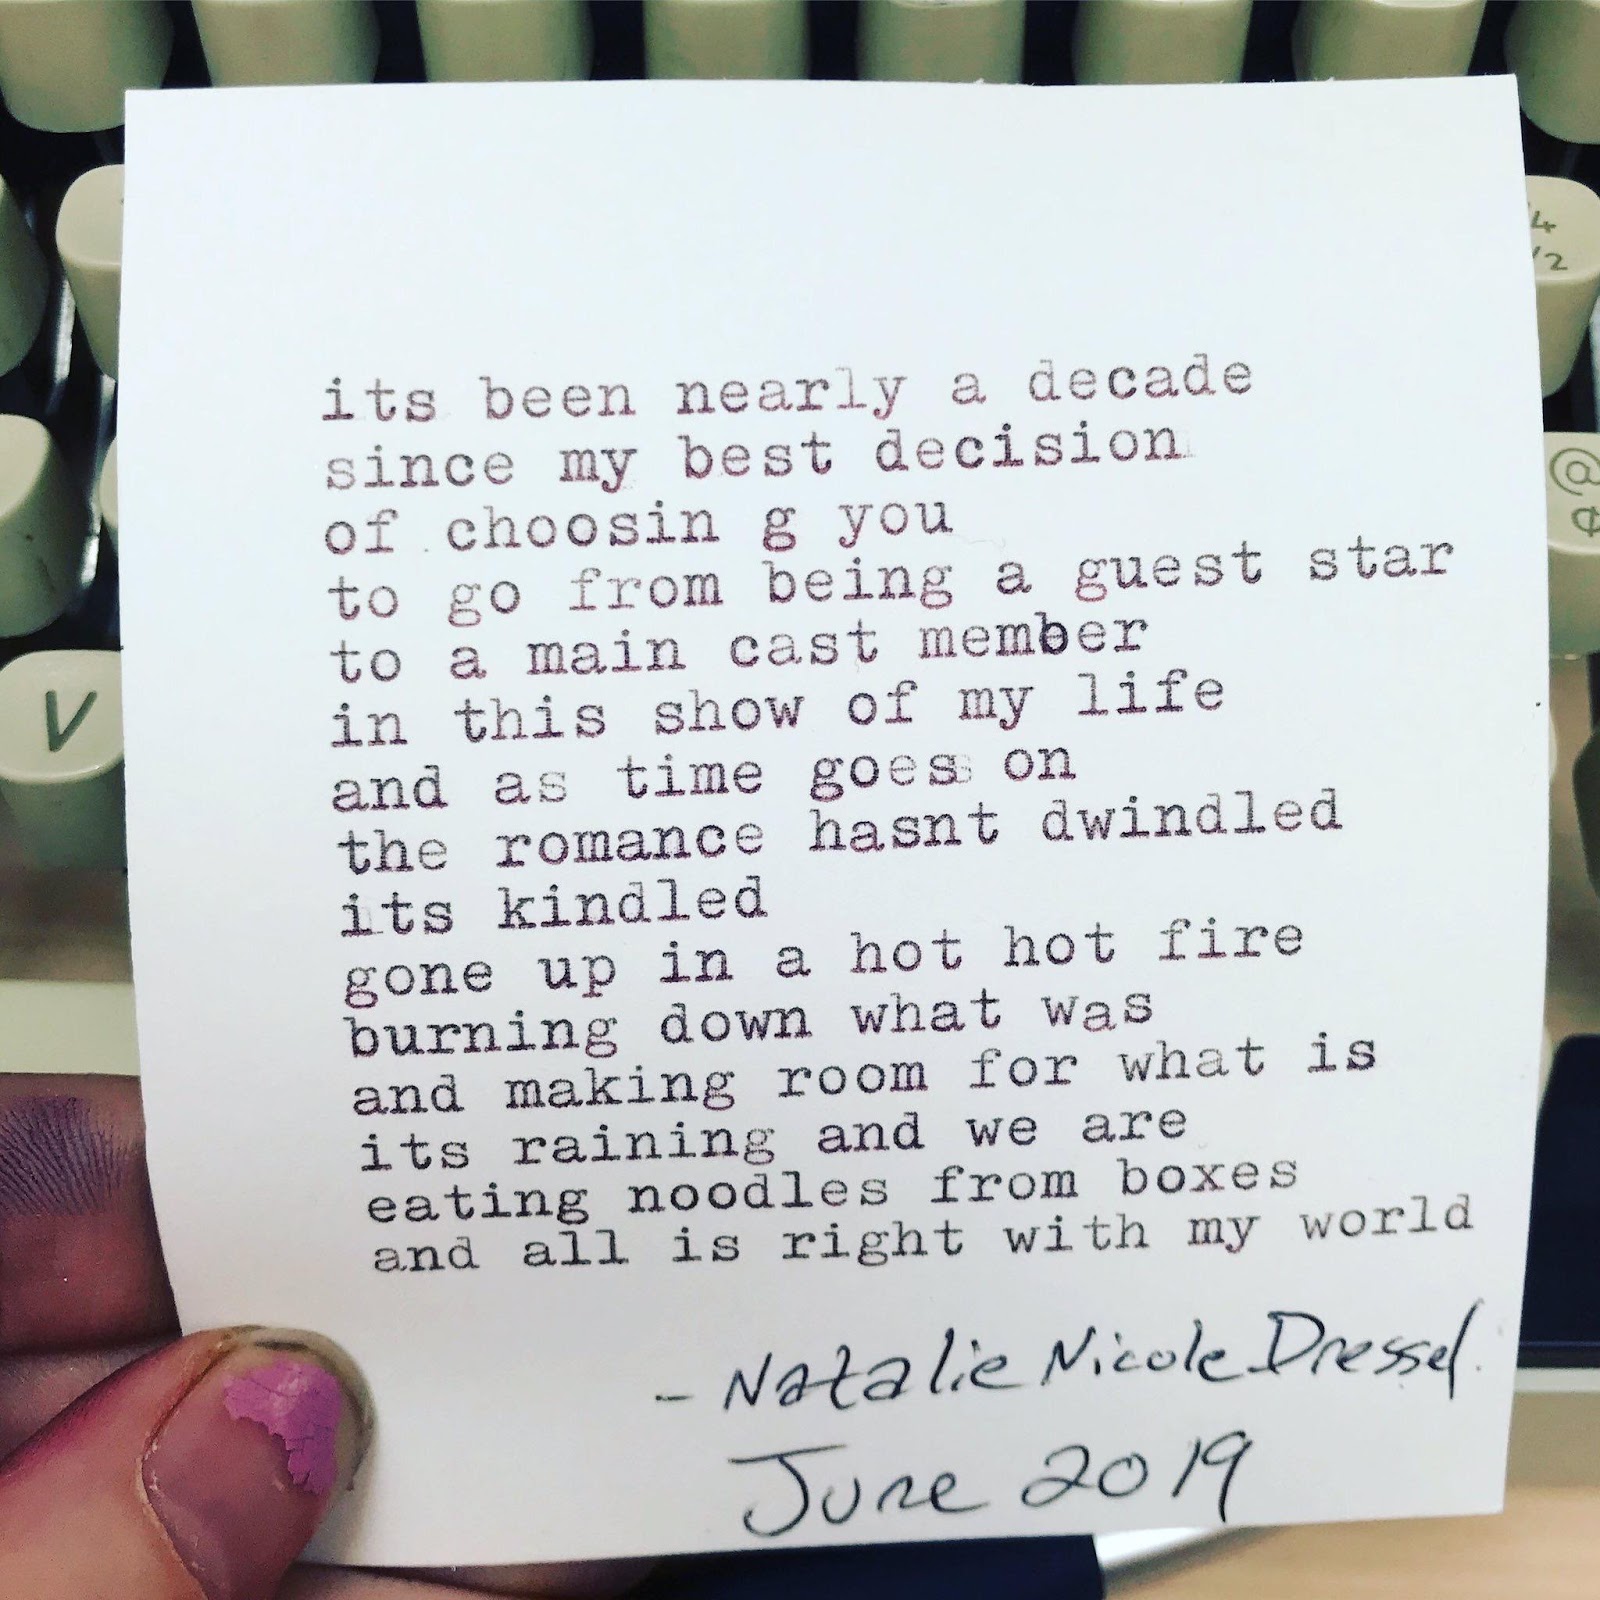 its been nearly a decade
since my best decision
of choosin g you
to go from being a guest star
to a main cast member
in this show of my life
and as time goes on
the romance hasnt dwindled
its kindled
gone up in a hot hot fire
burning down what was
and making room for what is
its raining and we are
eating noodles from boxes
and all is right with my world
- Natalie Nicole Dressel.
June 2019
V
@
¢